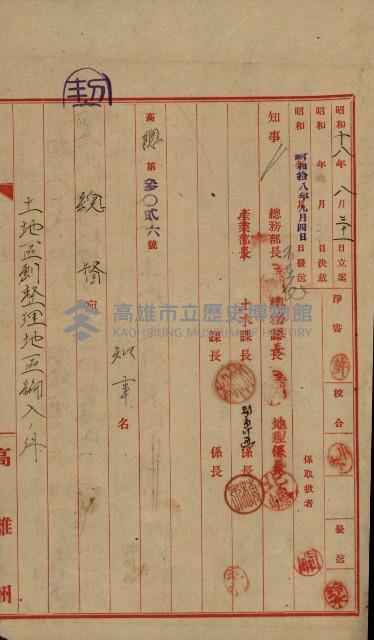 昭和十八年八月三十一日立案 淨書 校合 發送
昭和 年 月 日決裁
昭和拾八年九月四日發送 係取扱者
知事 總務部長 總務課長 地理係長
產業部長 土木課長 係長
課長 係長
高總第參〇貳六號
總督宛 知事名
土地區劃整理地區編入ノ件
高雄州
高雄市立歷史博物館
KAOHSIUNG MUSEUM OF HISTORY